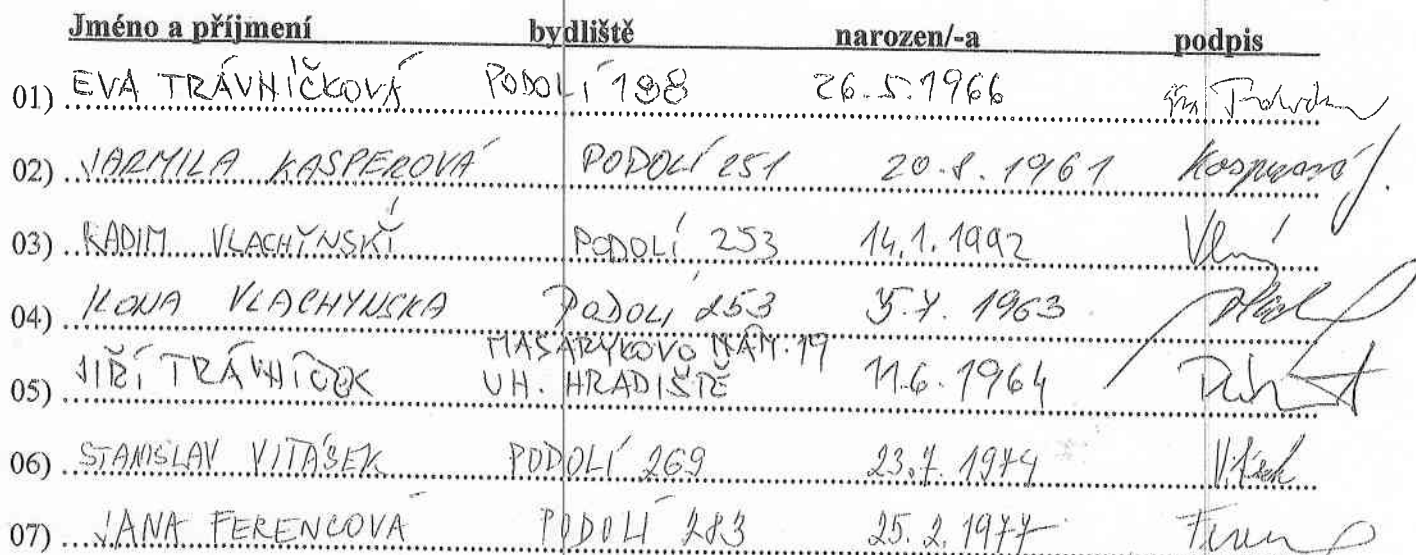 Jméno a příjmení bydliště narozen/-a podpis
01) EVA TRÁVNÍČKOVÁ PODOLÍ 198 26.5.1966
02) JARMILA KASPEROVÁ PODOLÍ 251 20.8.1961 Kasperová J.
03) RADIM VLACHYNSKÝ PODOLÍ 253 14.1.1992
04) ILONA VLACHYNSKA PODOLÍ 253 5.7.1963
MASARYKOVO NÁM. 19
05) JIŘÍ TRÁVNÍČEK UH. HRADIŠTĚ 11.6.1964
06) STANISLAV VITÁSEK PODOLÍ 269 23.7.1974 Vitásek
07) JANA FERENCOVÁ PODOLÍ 283 25.2.1977